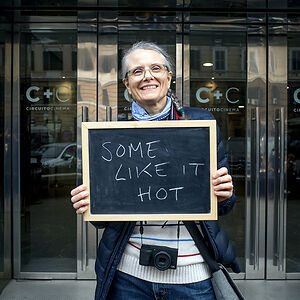 C+C
CIRCUITOCINEMA
C+C
CIRCUITOCINEMA
SOME
LIKE IT
HOT